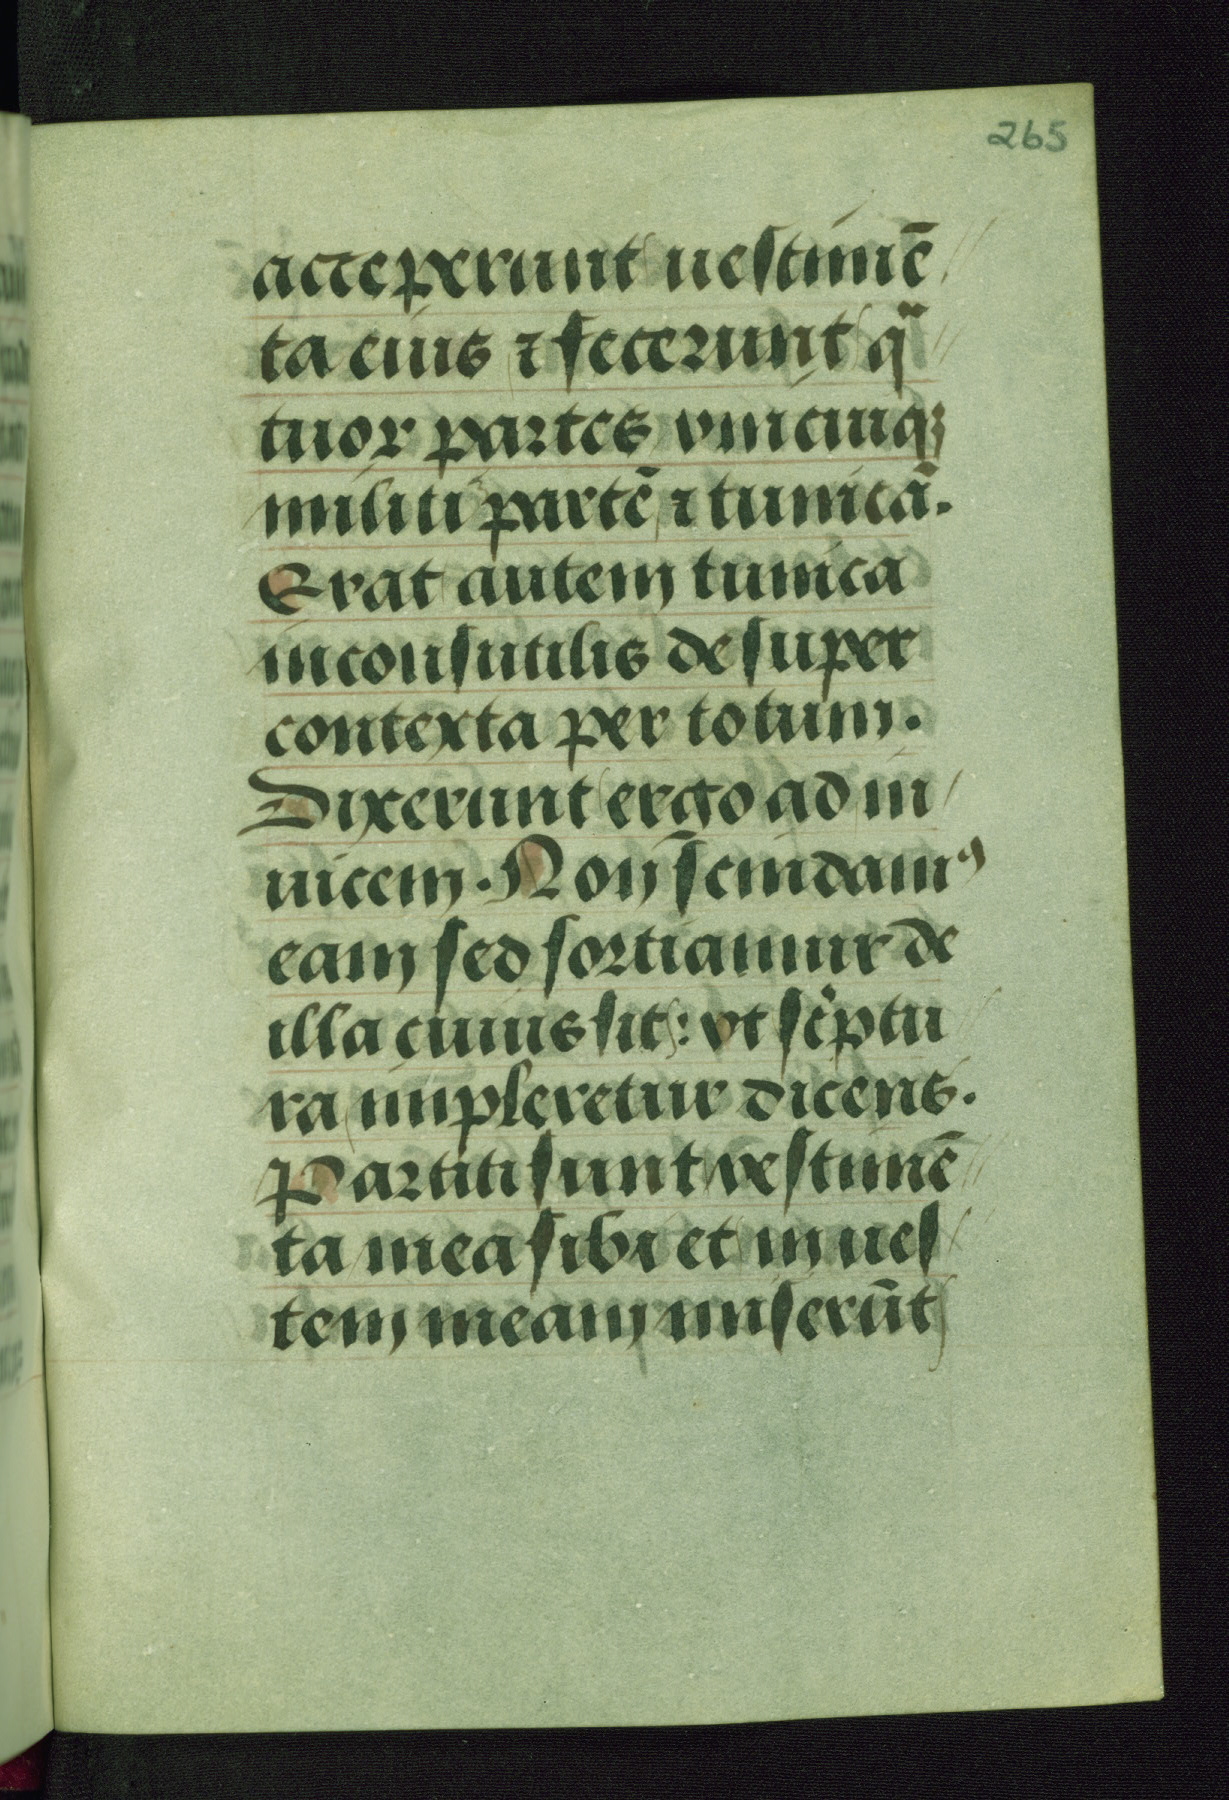 265
acceperunt uestimē
ta eius ⁊ fecerunt qͣ
tuor partes vnicuiqꝫ
militi partē ⁊ tunicā.
Erat autem tunica
inconsutilis desuper
contexta per totum.
Dixerunt ergo ad in
uicem. Non scindamꝰ
eam sed sortiamur de
illa cuius sit: vt scͥptu
ra impleretur dicens.
Partiti sunt vestimē
ta mea sibi et in ues
tem meam miserūt